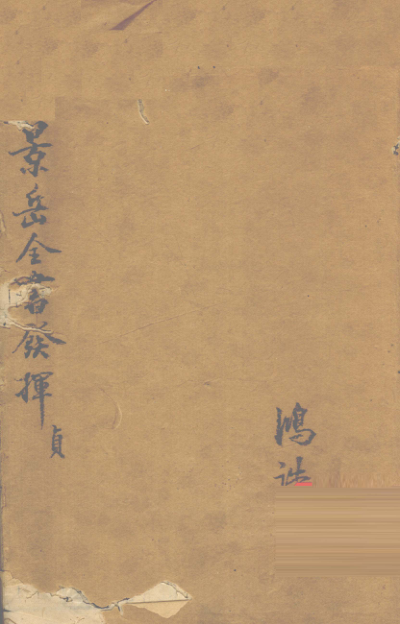 鴻
景岳全書發揮 貞